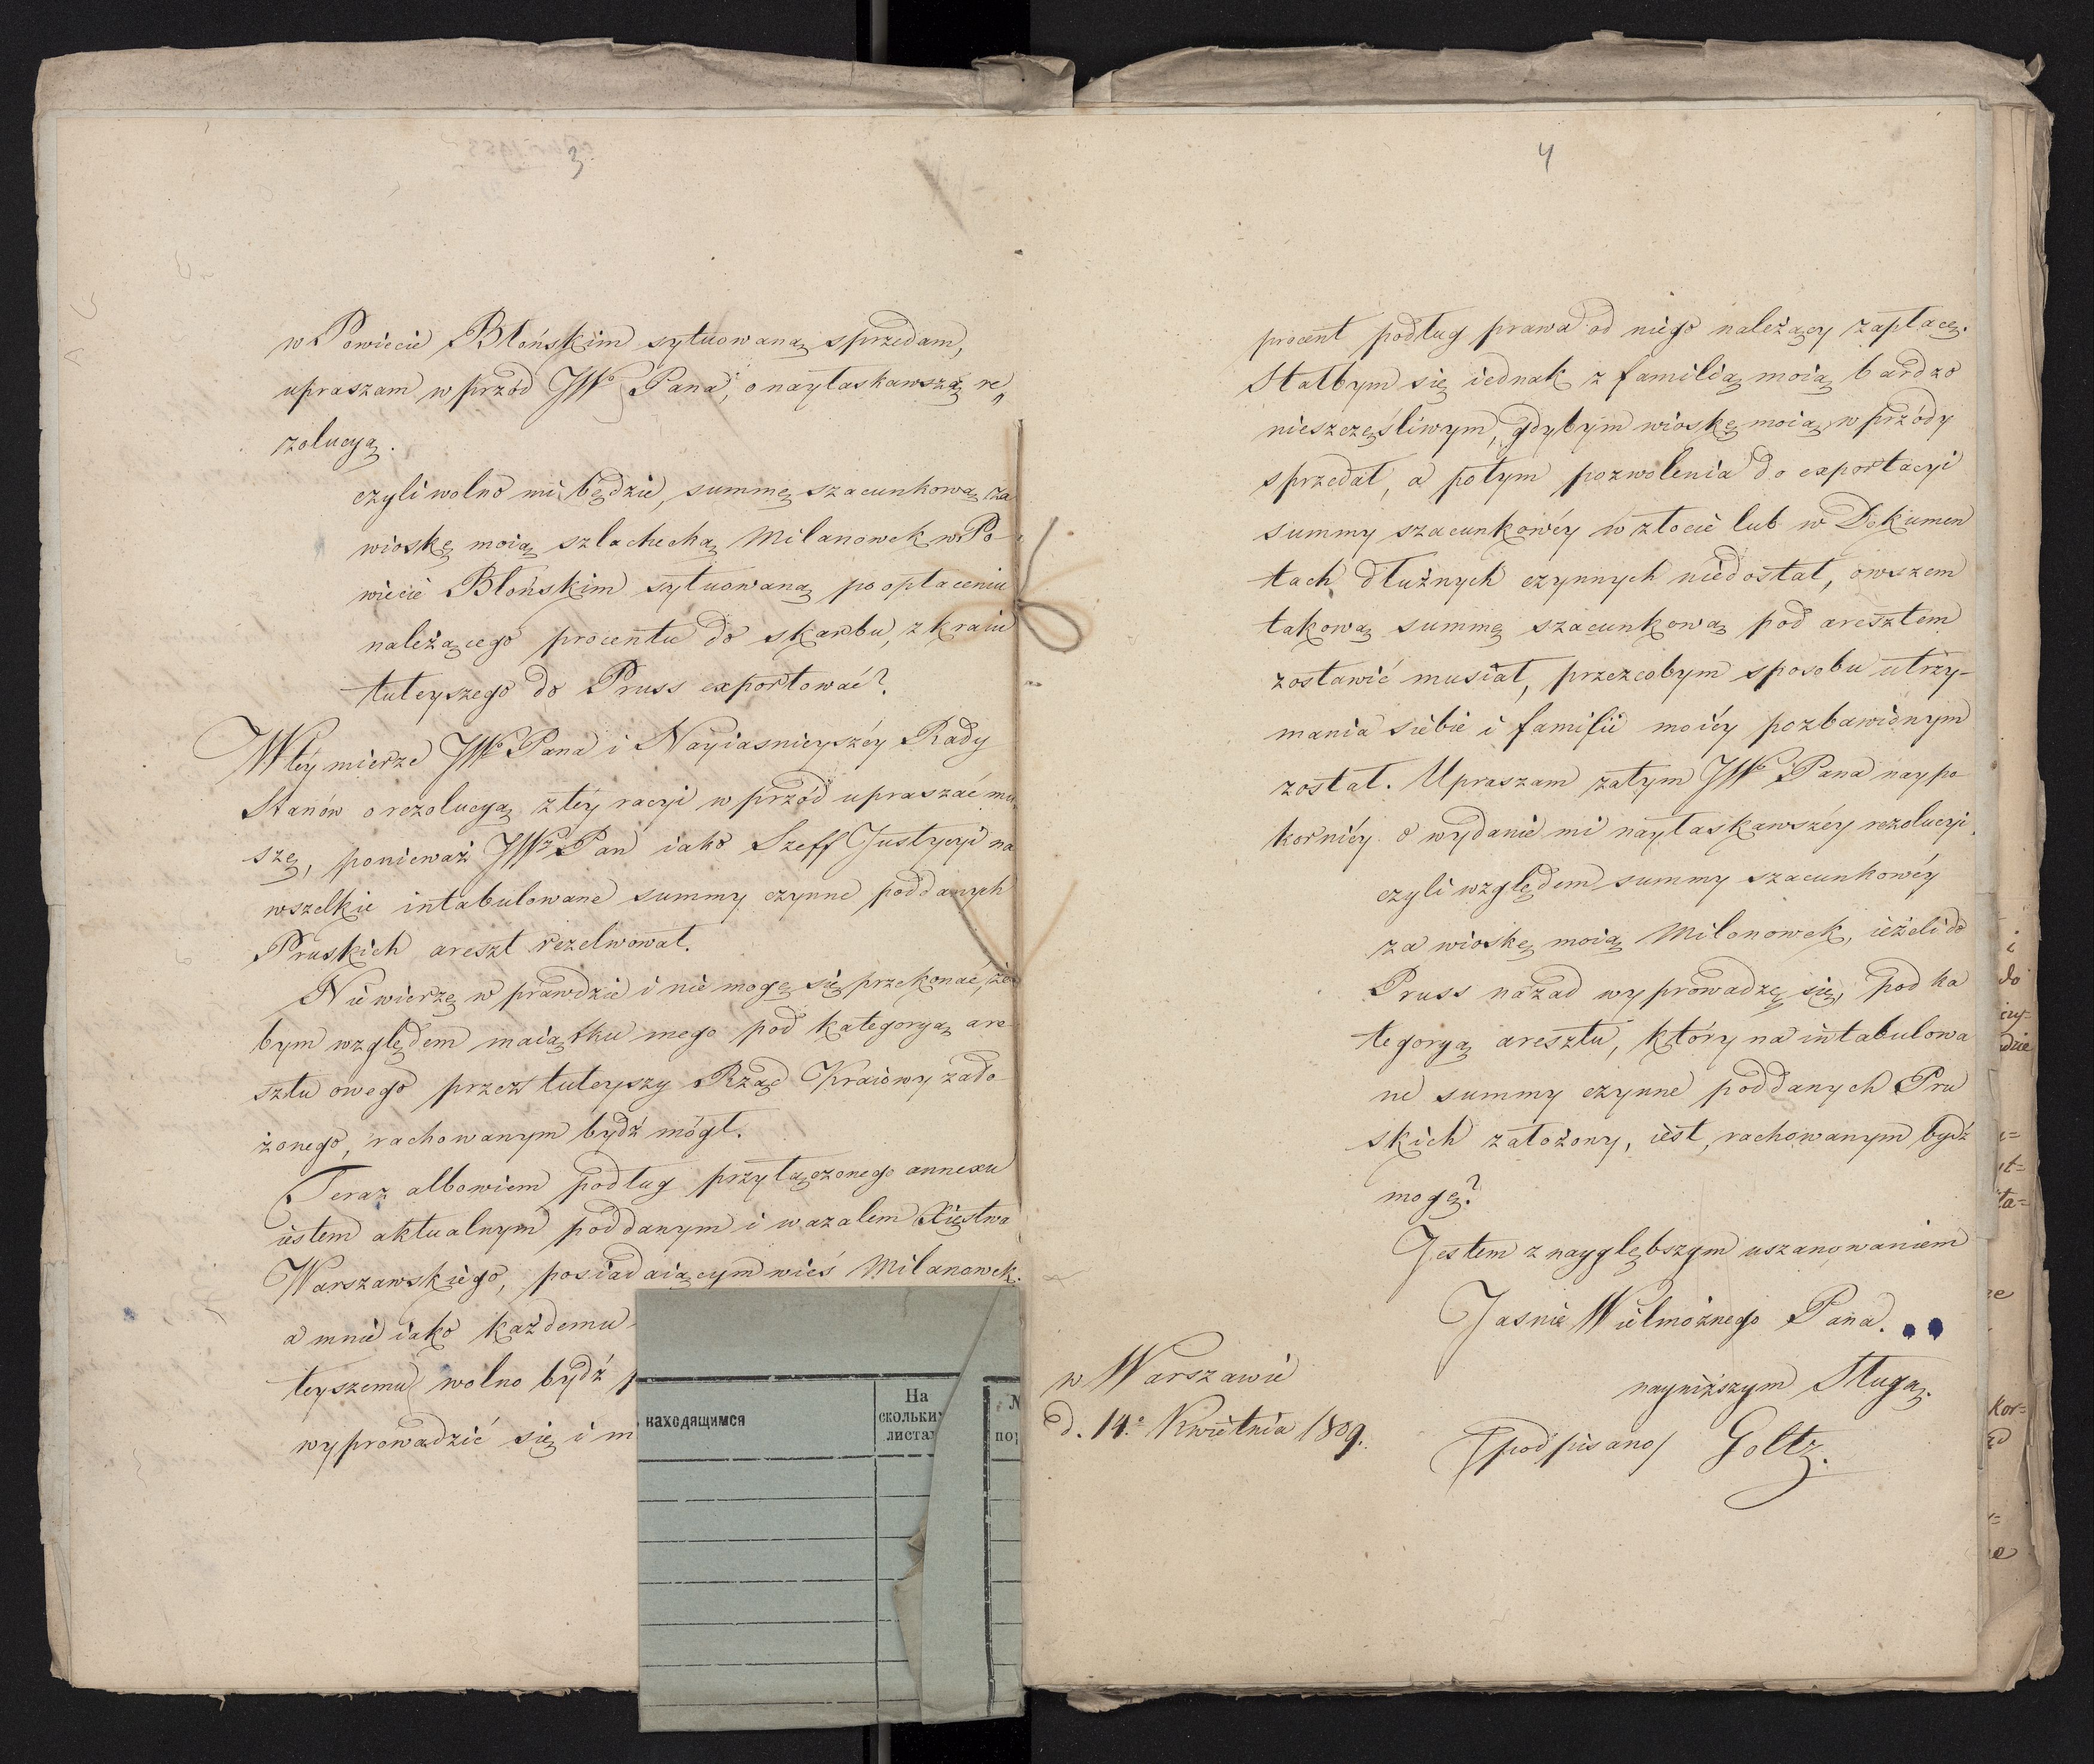 3
w Powiecie Błońskim sytuowaną sprzedam,
upraszam w przód JWo Pana, o nayłaskawszą re„
zolucyą.
czyli wolno mi będzie, summę szacunkową za
wioskę moią szlachecką Milanowek w Po-
wiecie Błońskim sytuowaną po opłaceniu
należącego procentu do skarbu, z kraiu
tuteyszego do Pruss exportować?
W téy mierze JWo Pana i Nayiasnieyszéy Rady
Stanów o rezolucyą z téy racyi w przód upraszać mu
szę, ponieważ JWo Pan iako Szeff Justycyi na
wszelkie intabulowane summy czynne poddanych
Pruskich areszt rezelwował.
Nie wierzę w prawdzie i nie mogę się przekonać, że
bym względem maiątku mego pod kategoryą are
sztu owego przez tuteyszy Rząd Kraiowy zało
żonego, rachowanym bydź mógł.
Teraz albowiem podług przyłączonego annexu
iestem aktualnym poddanym i wazalem Xięstwa
Warszawskiego, posiadaiącym wieś Milanowek.
a mnie iako każdemu
teyszemu wolno bydź
wyprowadzić się i m
находящимся
На
скольки
листа
№
по
4
procent podług prawa od niego należący zapłacę.
Stałbym się iednak z familią moią bardzo
nieszczęśliwym, gdybym wioskę moią w przódy
sprzedał, a potym pozwolenia do exportacyi
summy szacunkowéy w złocie lub w Dokumen
tach dłużnych czynnych niedostał, owszem
takową summę szacunkową pod aresztem
zostawić musiał, przezcobym sposobu utrzy-
mania siebie i familii moiéy pozbawionym
został. Upraszam zatym JWo Pana naypo
korniéy o wydanie mi nayłaskawszéy rezolucyi.
czyli względem summy szacunkowéy
za wioskę moią Milonowek, ieżeli do
Pruss nazad wyprowadzę się, pod ka
tegoryą aresztu, który na intabulowa
ne summy czynne poddanych Pru
skich założony, iest, rachowanym bydź
mogę?
Jestem z nayglębszym uszanowaniem
Jasnie Wielmożnego Pana.
nayniższym Sługą.
w Warszawie
d. 14o Kwietnia 1809.
/podpisano/ Goltz.